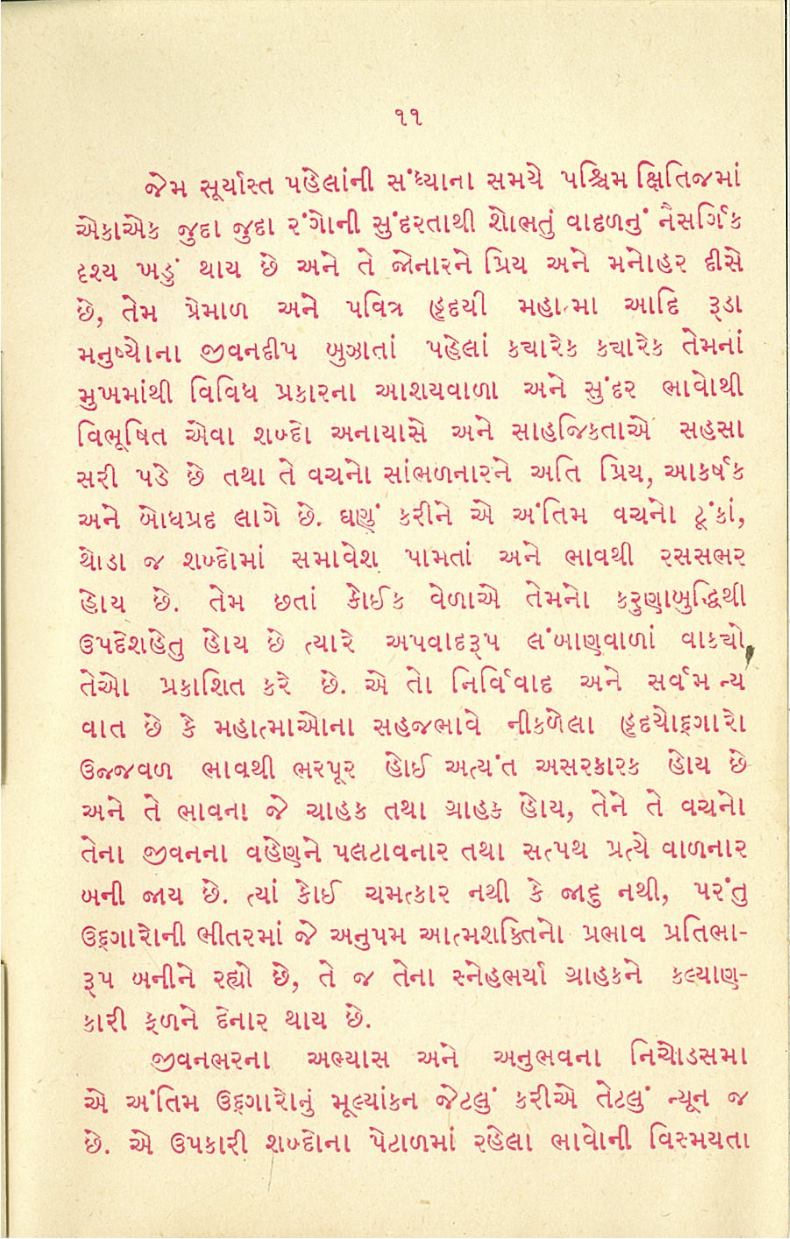 ૧૧
જેમ સૂર્યાસ્ત પહેલાંની સંધ્યાના સમયે પશ્ચિમ ક્ષિતિજમાં
એકાએક જુદા જુદા રંગોની સુંદરતાથી શોભતું વાદળનું નૈસર્ગિક
દૃશ્ય ખડું થાય છે અને તે જોનારને પ્રિય અને મનોહર દીસે
છે, તેમ પ્રેમાળ અને પવિત્ર હૃદયી મહાત્મા આદિ રૂડા
મનુષ્યોના જીવનદીપ બુઝાતાં પહેલાં ક્યારેક ક્યારેક તેમનાં
મુખમાંથી વિવિધ પ્રકારના આશયવાળા અને સુંદર ભાવોથી
વિભૂષિત એવા શબ્દો અનાયાસે અને સાહજિકતાએ સહસા
સરી પડે છે તથા તે વચનો સાંભળનારને અતિ પ્રિય, આકર્ષક
અને બોધપ્રદ લાગે છે. ઘણું કરીને એ અંતિમ વચનો ટૂંકાં,
થોડા જ શબ્દોમાં સમાવેશ પામતાં અને ભાવથી રસસભર
હોય છે. તેમ છતાં કોઈક વેળાએ તેમનો કરુણાબુદ્ધિથી
ઉપદેશહેતુ હોય છે ત્યારે અપવાદરૂપ લંબાણવાળાં વાક્યો
તેઓ પ્રકાશિત કરે છે. એ તો નિર્વિવાદ અને સર્વમાન્ય
વાત છે કે મહાત્માઓના સહજભાવે નીકળેલા હૃદયોદ્ગારો
ઉજ્જવળ ભાવથી ભરપૂર હોઈ અત્યંત અસરકારક હોય છે
અને તે ભાવના જે ચાહક તથા ગ્રાહક હોય, તેને તે વચનો
તેના જીવનના વહેણને પલટાવનાર તથા સત્પથ પ્રત્યે વાળનાર
બની જાય છે. ત્યાં કોઈ ચમત્કાર નથી કે જાદુ નથી, પરંતુ
ઉદ્ગારોની ભીતરમાં જે અનુપમ આત્મશક્તિનો પ્રભાવ પ્રતિભા-
રૂપ બનીને રહ્યો છે, તે જ તેના સ્નેહભર્યા ગ્રાહકને કલ્યાણ-
કારી ફળને દેનાર થાય છે.
જીવનભરના અભ્યાસ અને અનુભવના નિચોડસમા
એ અંતિમ ઉદ્ગારોનું મૂલ્યાંકન જેટલું કરીએ તેટલું ન્યૂન જ
છે. એ ઉપકારી શબ્દોના પેટાળમાં રહેલા ભાવોની વિસ્મયતા